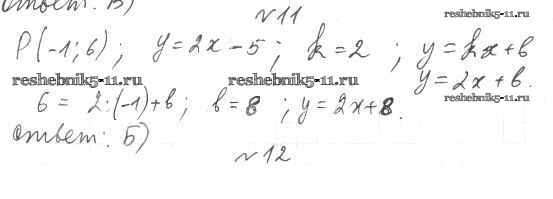 Ответ: В)
№11
reshebnik5-11.ru
P(-1; 6); y = 2x - 5; k = 2; y = kx + b
y = 2x + b.
reshebnik5-11.ru reshebnik5-11.ru
reshebnik5-11.ru
6 = 2·(-1) + b; b = 8; y = 2x + 8.
Ответ: Б)
№12